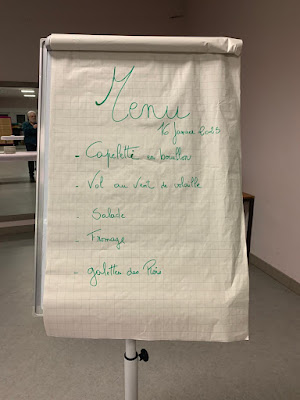 Menu
10 Janvier 2025
- Capeletti en bouillon
- Vol au vent de volaille
- Salade
- Fromage
- galettes des Rois